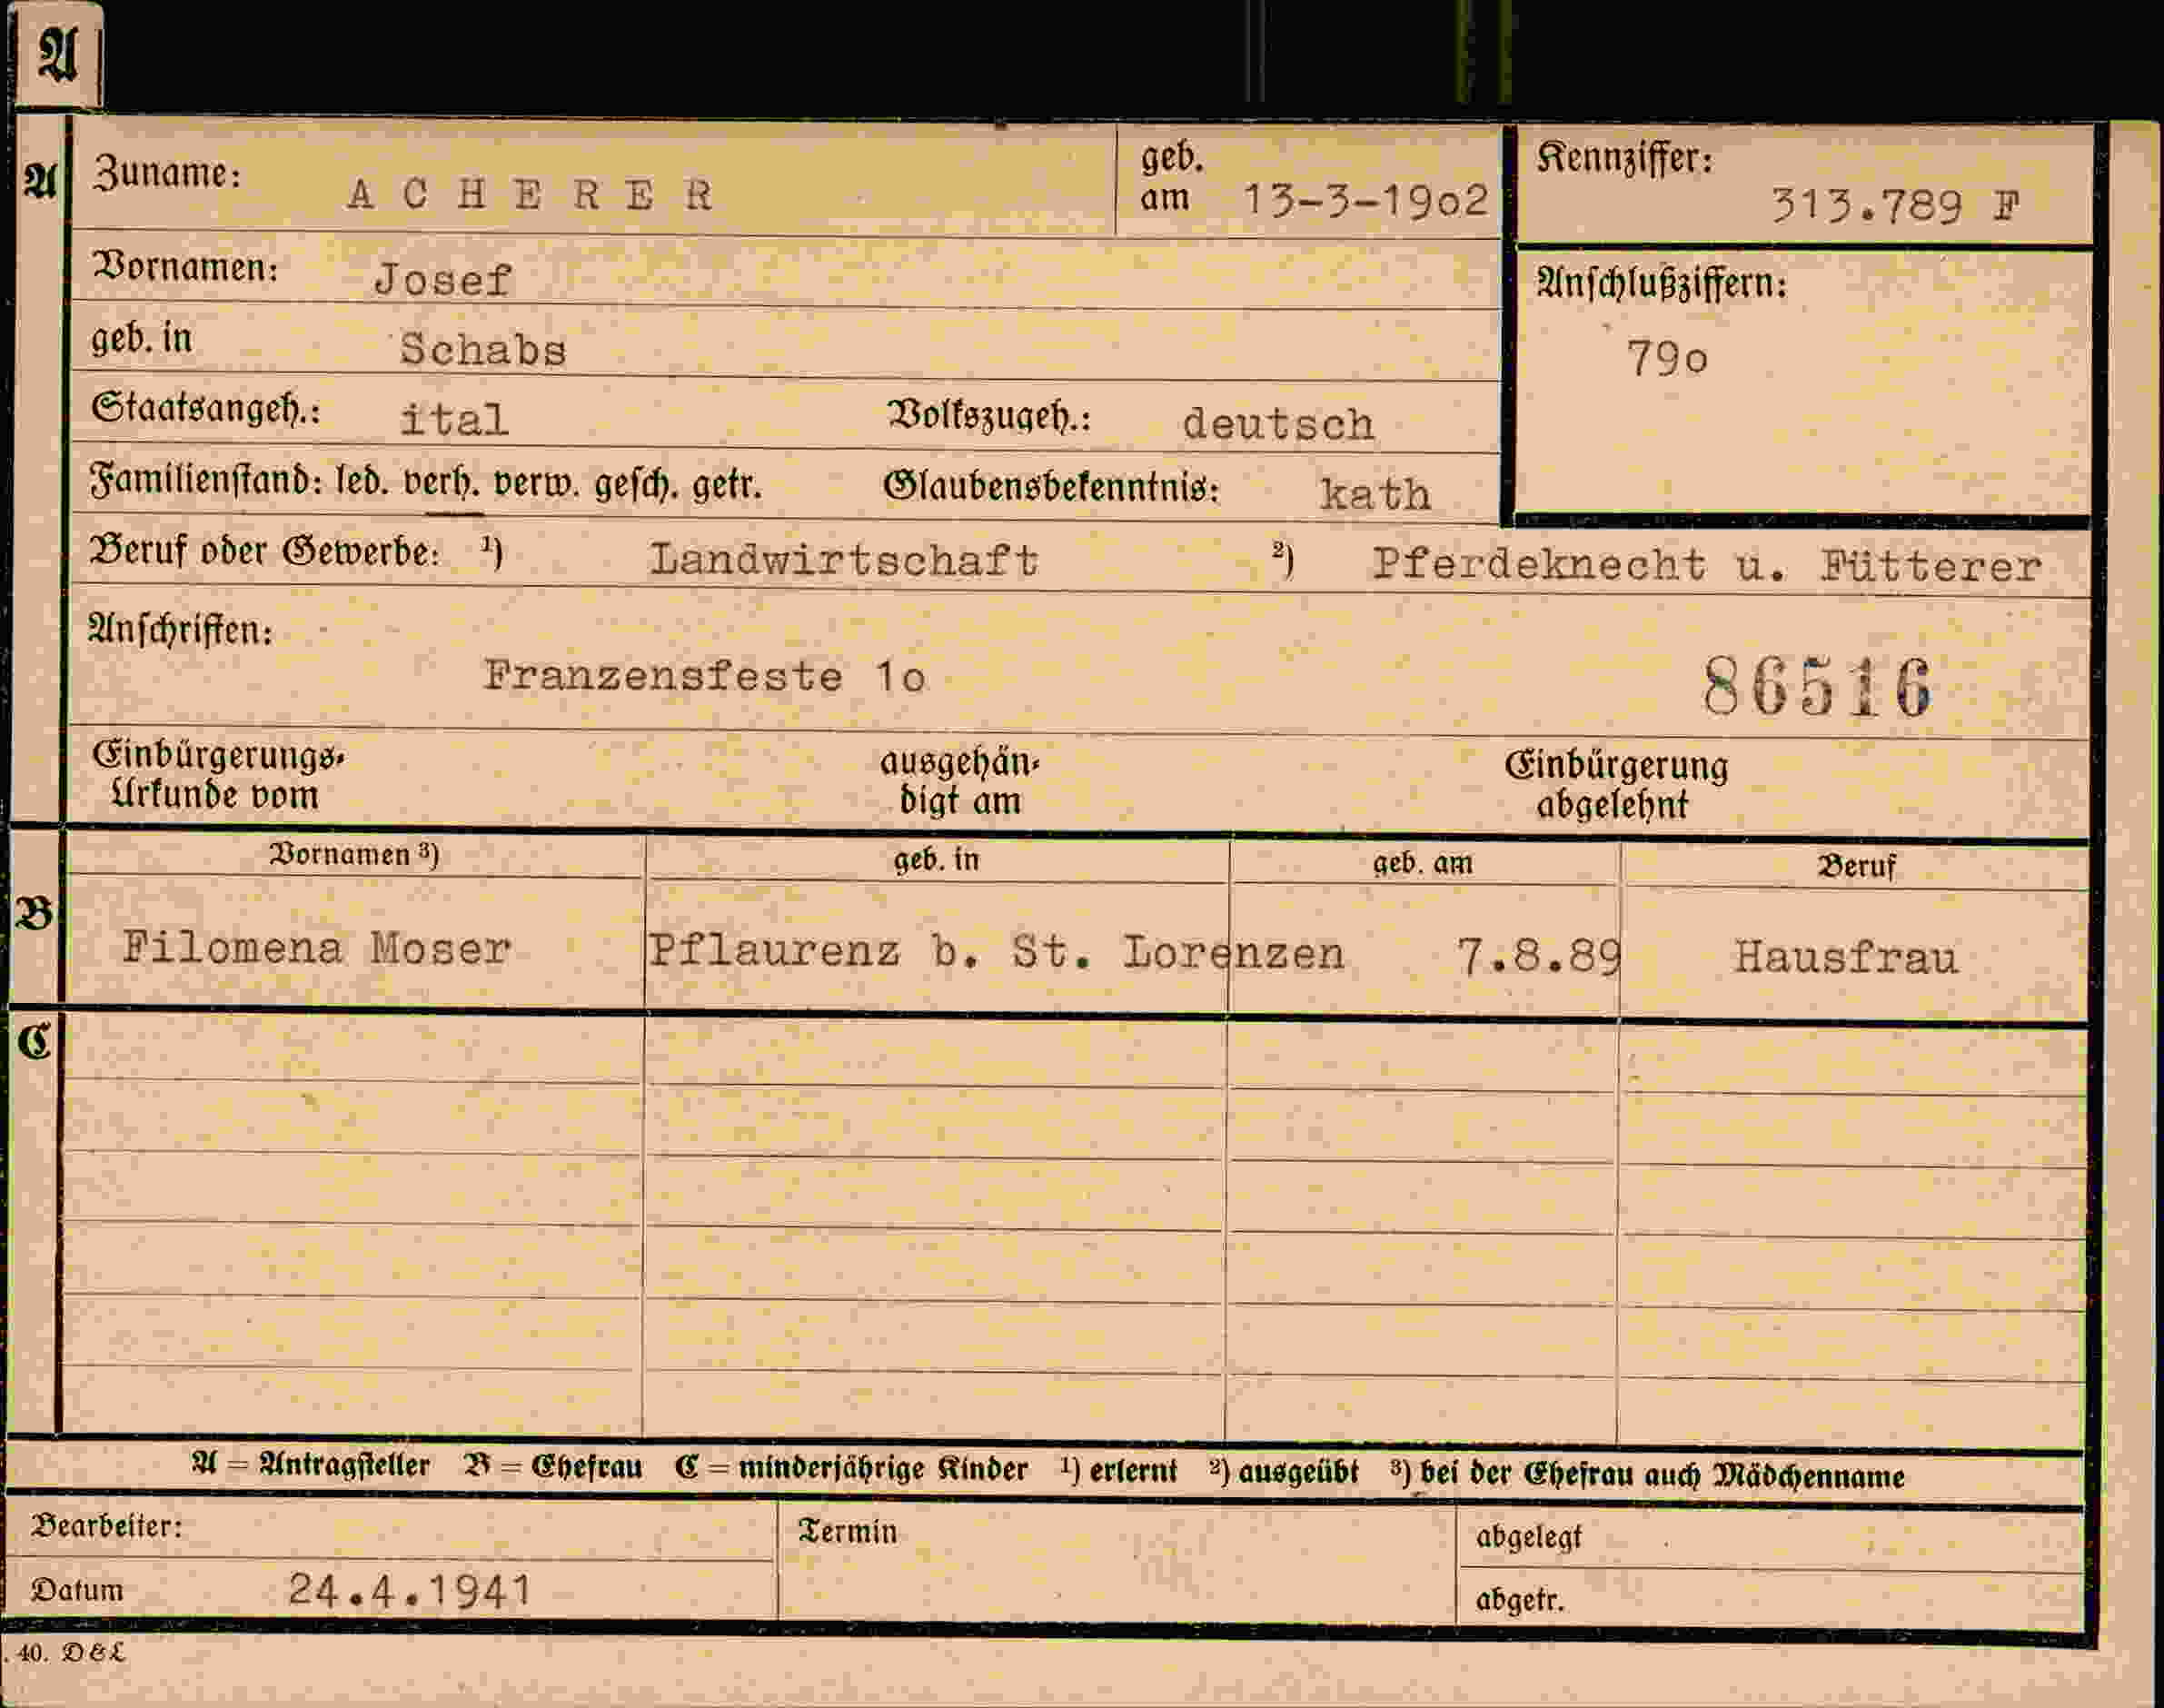 A
A
Zuname: ACHERER geb. am 13-3-19o2 Kennziffer: 313.789 F
Vornamen: Josef Anschlußziffern:
geb. in Schabs 79o
Staatsangeh.: ital Volkszugeh.: deutsch
Familienstand: led. verh. verw. gesch. getr. Glaubensbekenntnis: kath
Beruf oder Gewerbe: ¹) Landwirtschaft ²) Pferdeknecht u. Fütterer
Anschriften:
Franzensfeste 1o 86516
Einbürgerungs-Urkunde vom ausgehändigt am Einbürgerung abgelehnt
Vornamen ³) geb. in geb. am Beruf
B
Filomena Moser Pflaurenz b. St. Lorenzen 7.8.89 Hausfrau
C
A = Antragsteller B = Ehefrau C = minderjährige Kinder ¹) erlernt ²) ausgeübt ³) bei der Ehefrau auch Mädchenname
Bearbeiter: Termin abgelegt
Datum 24.4.1941 abgetr.
. 40. D & L